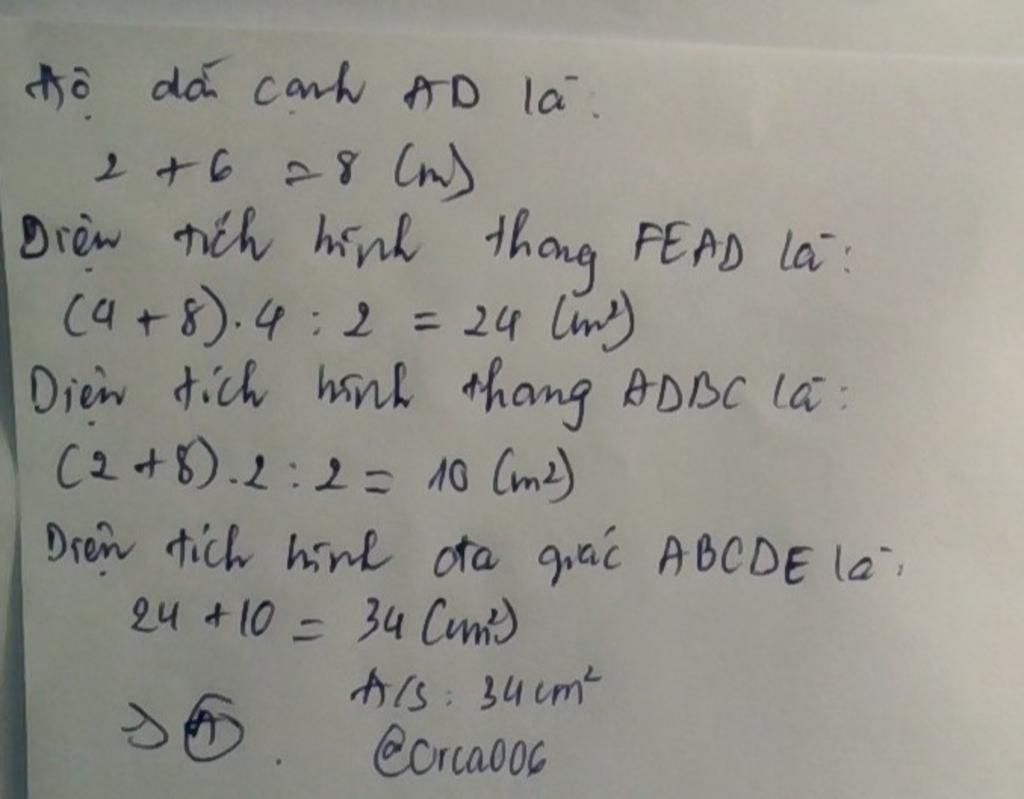 Độ dài cạnh AD là:
2 + 6 = 8 (m)
Diện tích hình thang FEAD là:
(4 + 8).4 : 2 = 24 (m²)
Diện tích hình thang ADBC là:
(2 + 8).2 : 2 = 10 (m2)
Diện tích hình đa giác ABCDE là:
24 + 10 = 34 (cm²)
Đ/S : 34 cm²
⇒ A .
@Orca006